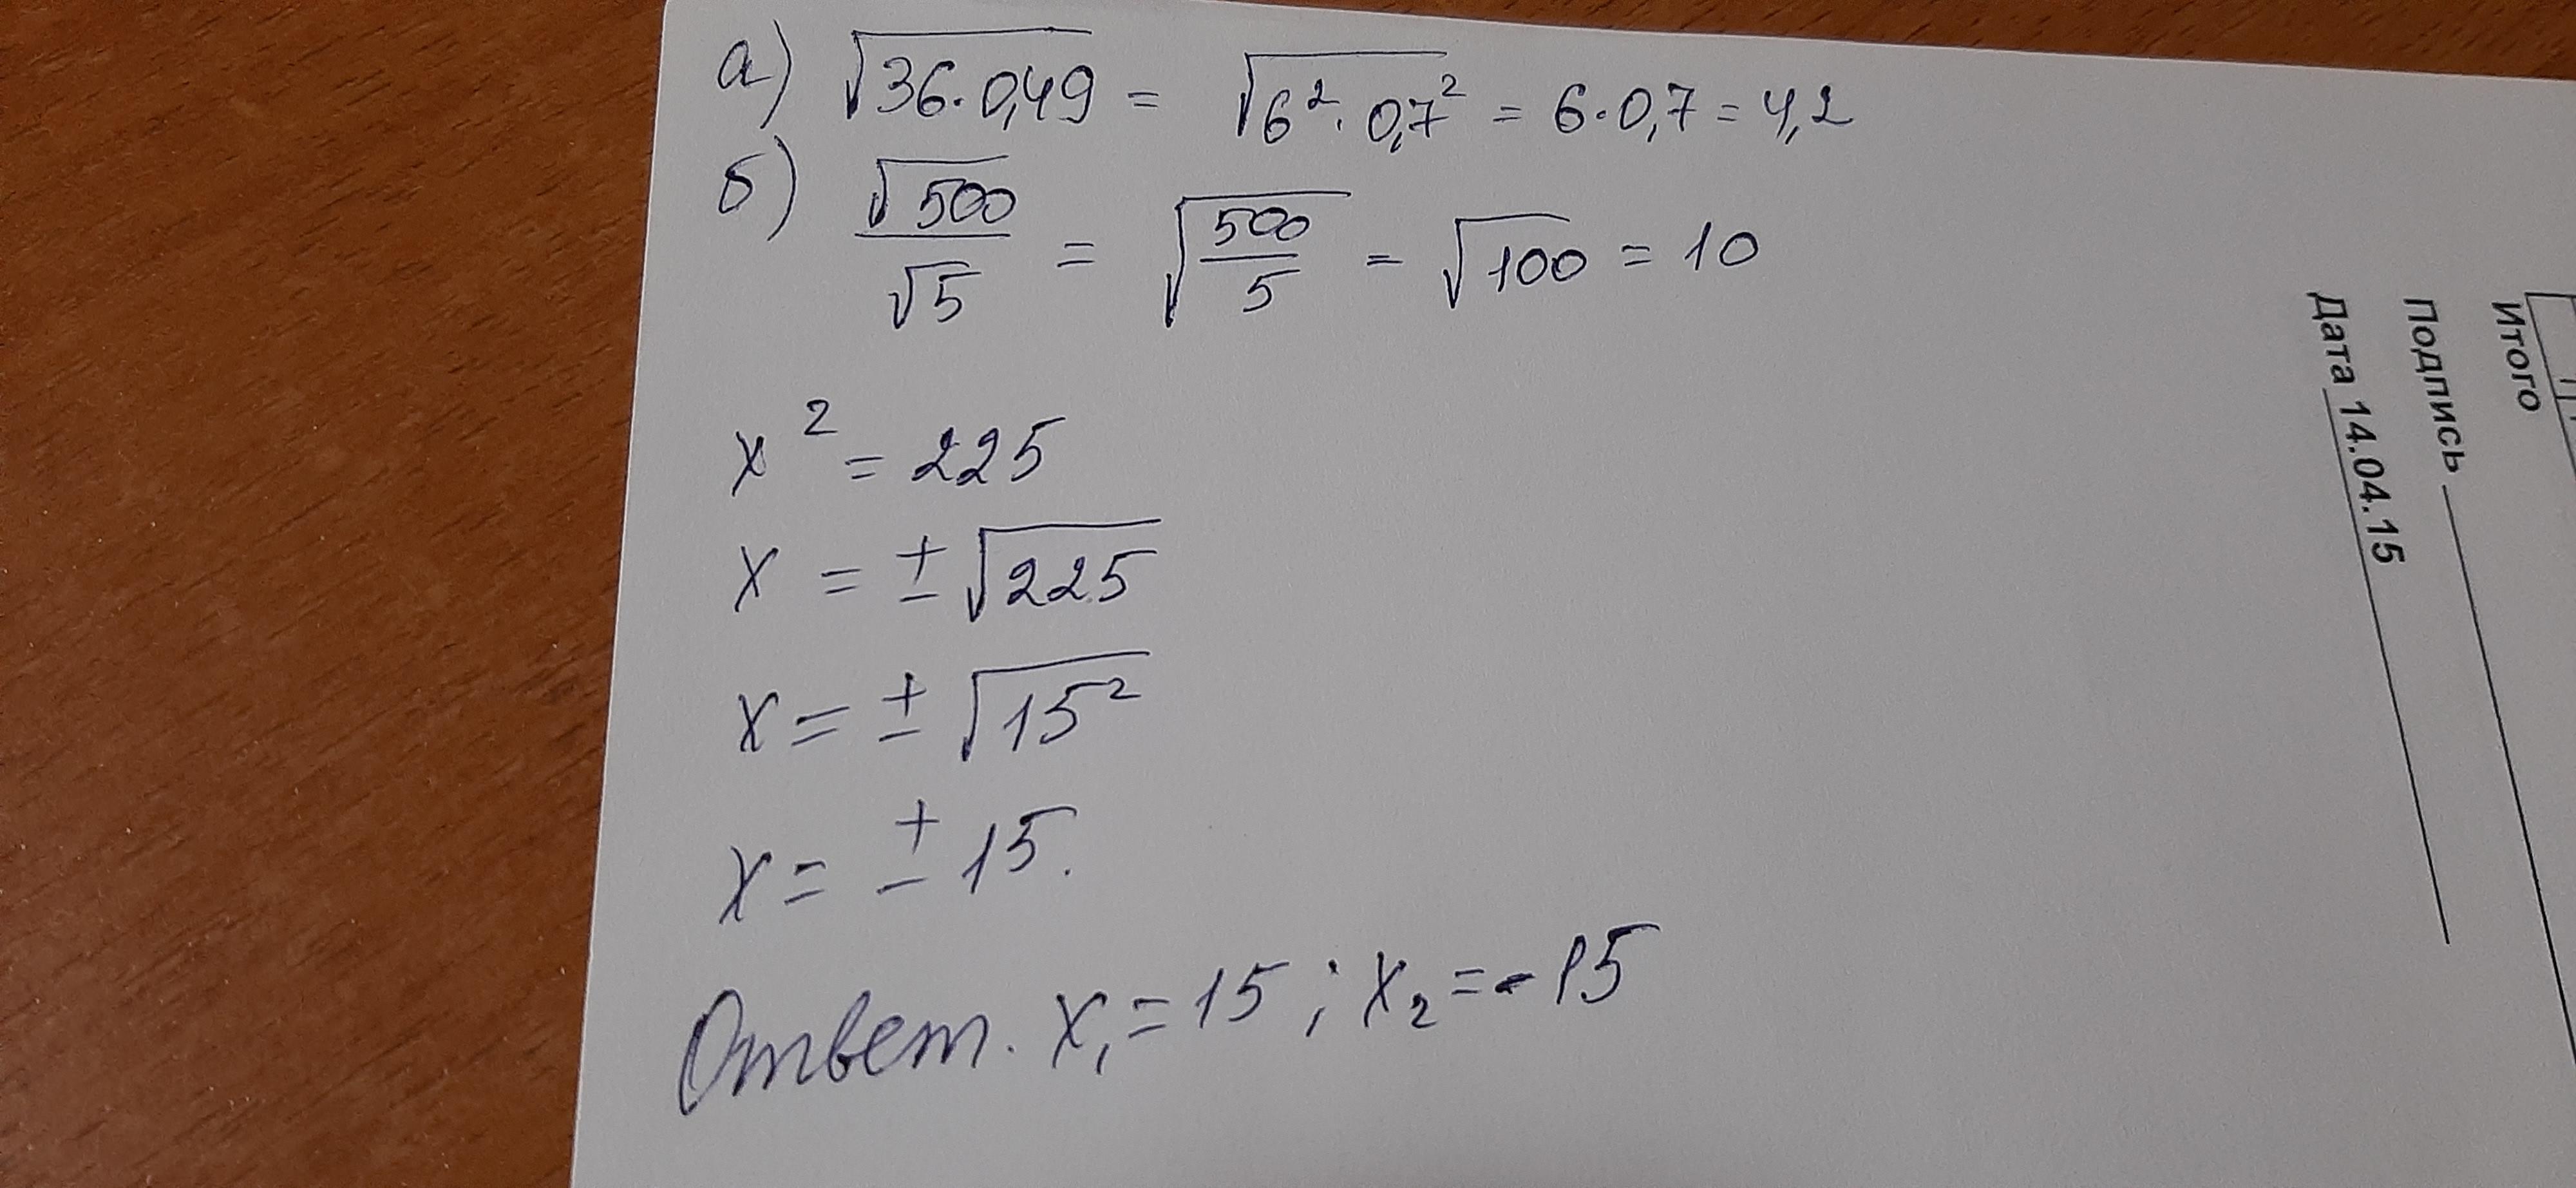 а) √36·0,49 = √6²·0,7² = 6·0,7 = 4,2
б) √500/√5 = √500/5 = √100 = 10
x² = 225
x = ±√225
x = ±√15²
x = ±15.
Ответ. x₁ = 15; x₂ = -15
Итого
Подпись
Дата 14.04.15